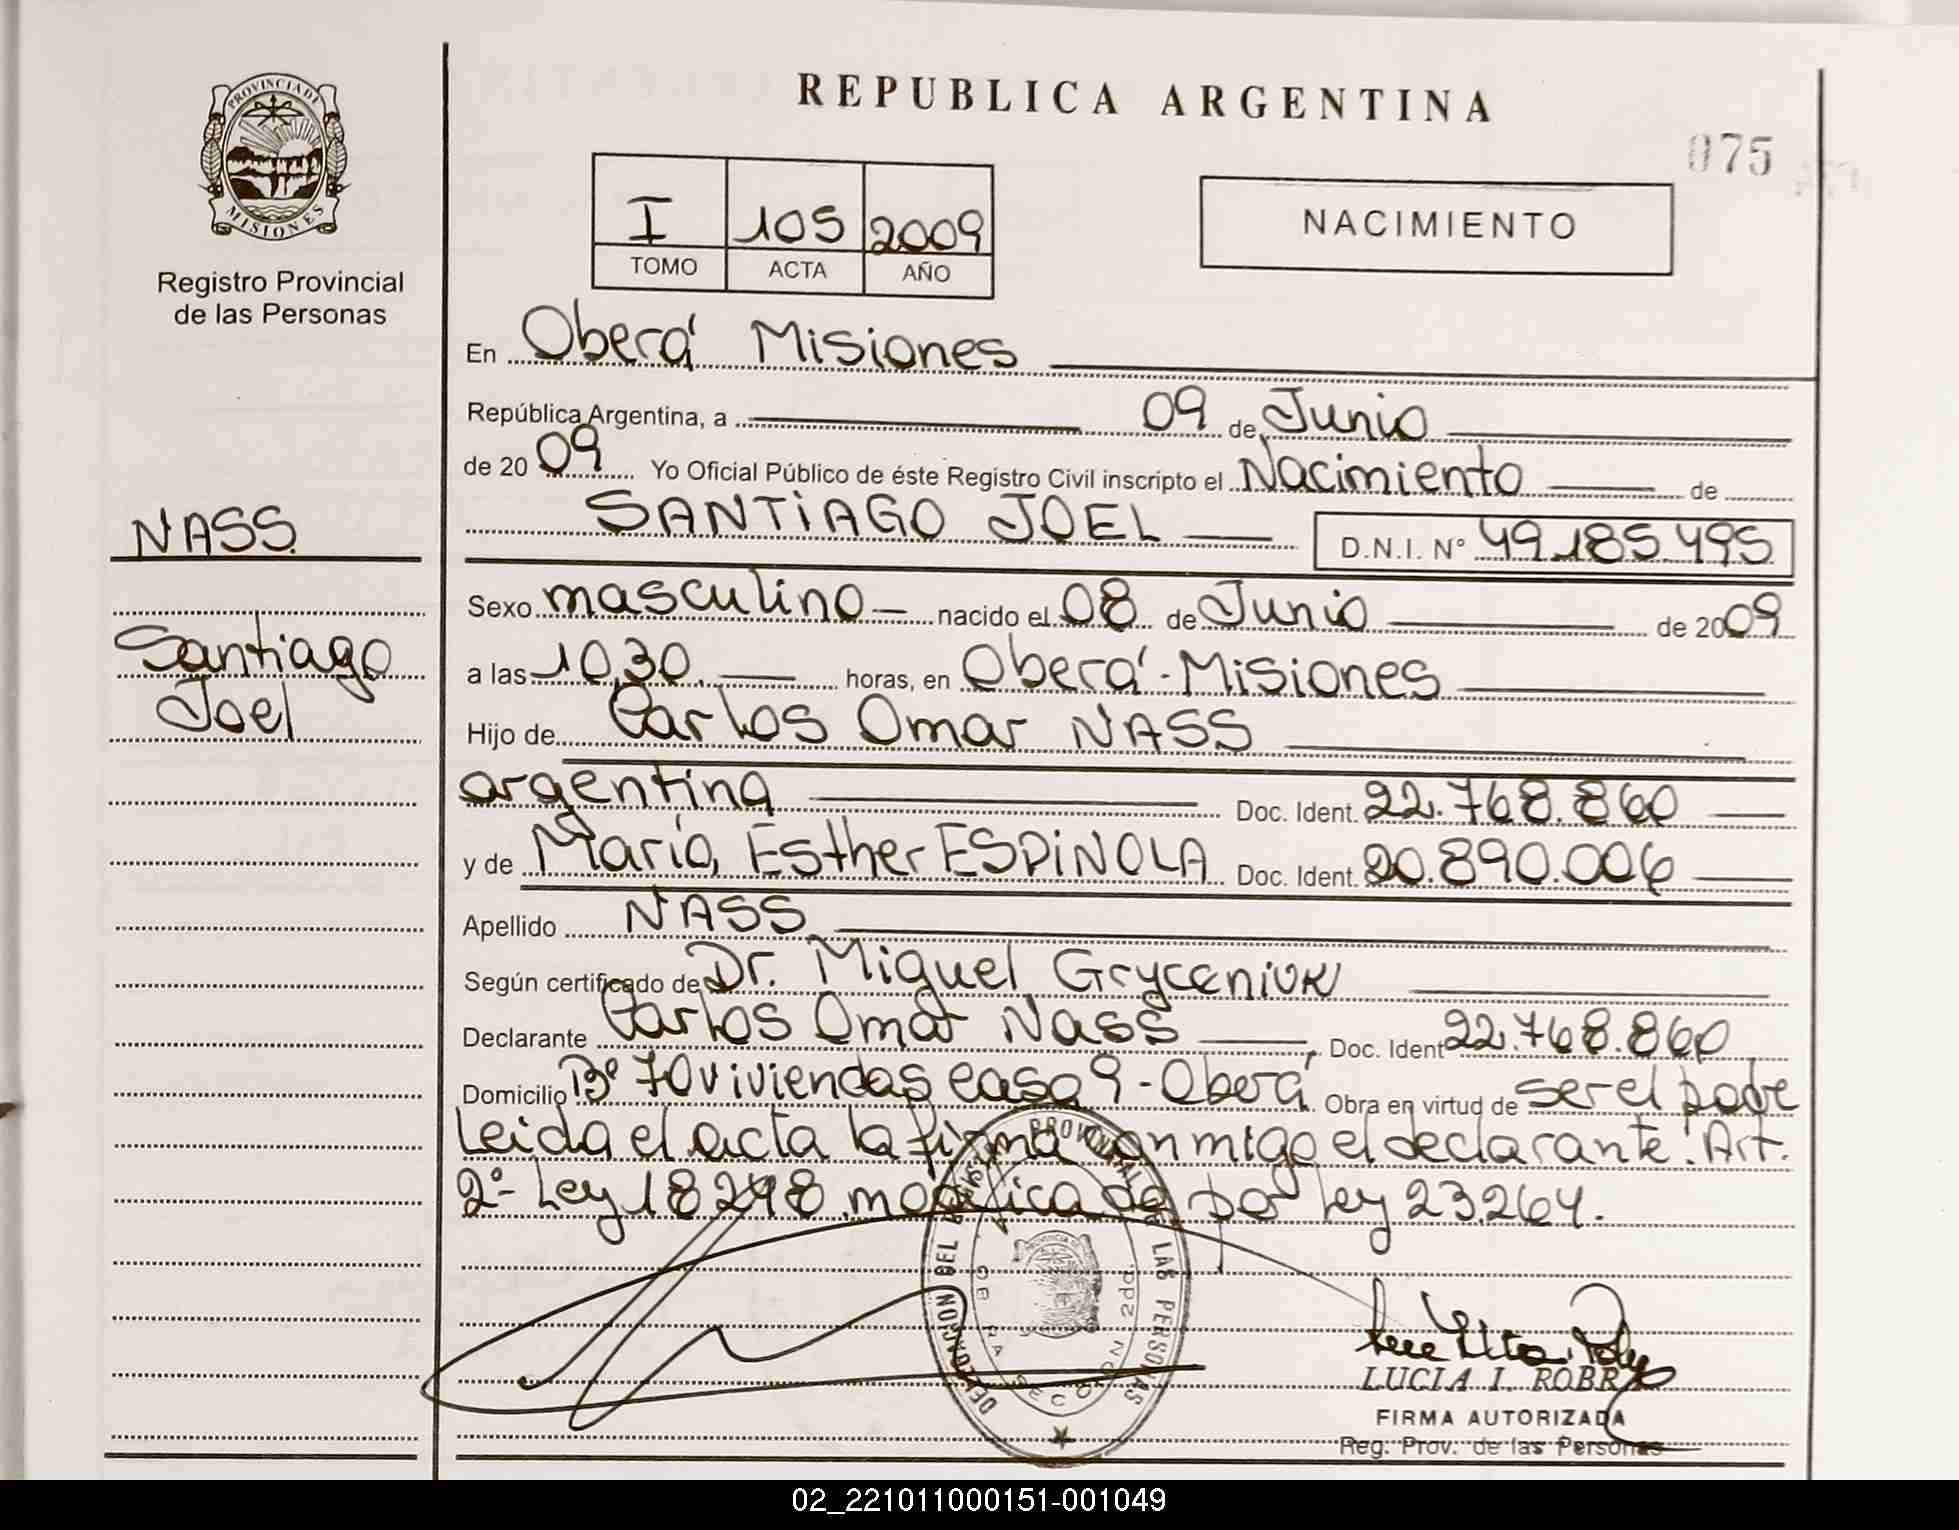 REPUBLICA ARGENTINA
075
PROVINCIA DE
MISIONES
Registro Provincial
de las Personas
I 105 2009
TOMO ACTA AÑO
NACIMIENTO
En Oberá Misiones
República Argentina, a 09 de Junio
de 2009 Yo Oficial Público de éste Registro Civil inscripto el Nacimiento de
SANTIAGO JOEL D.N.I. Nº 49.185.495
NASS
Santiago
Joel
Sexo masculino nacido el 08 de Junio de 2009
a las 10,30 horas, en Oberá - Misiones
Hijo de Carlos Omar NASS
argentina Doc. Ident. 22.768.860
y de María Esther ESPINOLA Doc. Ident. 20.890.006
Apellido NASS
Según certificado de Dr. Miguel Gryceniuk
Declarante Carlos Omar Nass, Doc. Ident 22.768.860
Domicilio Bº 70 viviendas casa 9 - Oberá Obra en virtud de ser el padre
Leida el acta la firma conmigo el declarante. Art.
2º- Ley 18248 modificada por Ley 23.264.
DELEGACION DEL REGISTRO PROVINCIAL DE LAS PERSONAS
SECCION 2da.
LUCIA I. ROBR
FIRMA AUTORIZADA
Reg. Prov. de las Personas
02_221011000151-001049